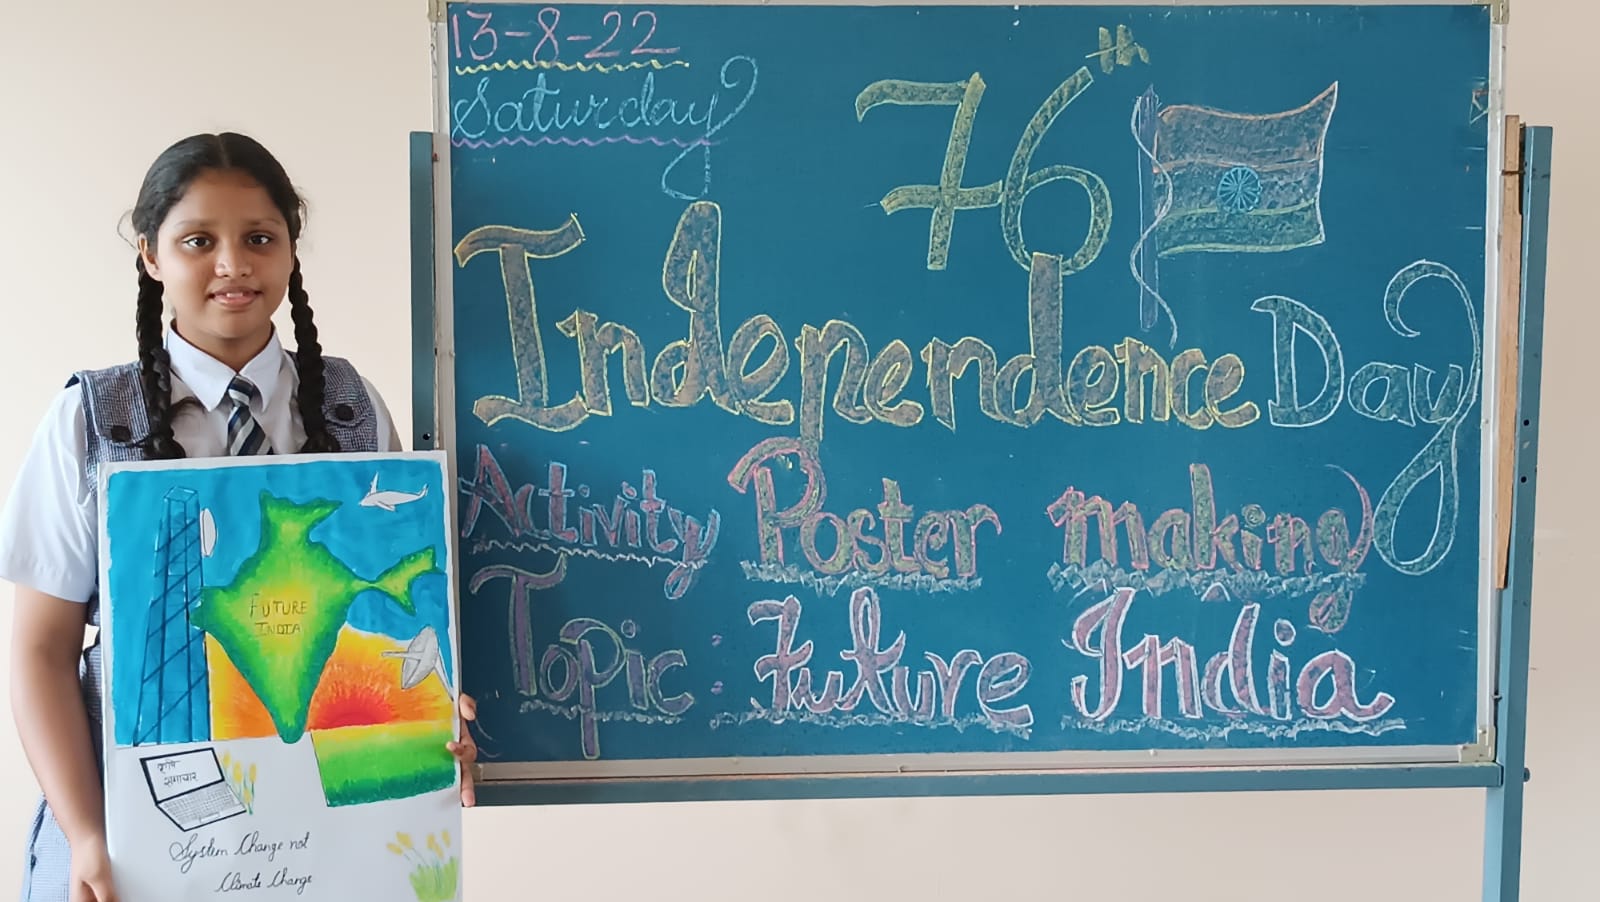 13-8-22
Saturday
76th
Independence Day
Activity Poster making
Topic: Future India
FUTURE
INDIA
कृषि
समाचार
System Change not
Climate Change